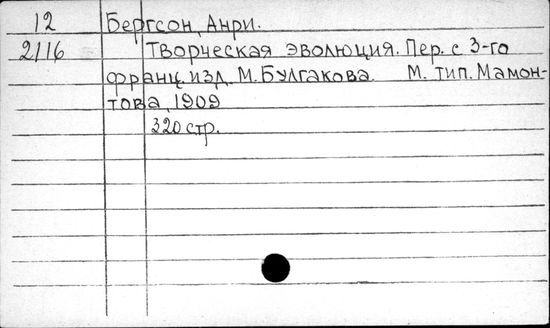 12 Бергсон, Анри.
2116 Творческая эволюция. Пер. с 3-го
франц. изд. М. Булгакова. М. тип. Мамон-
това, 1909
320 стр.